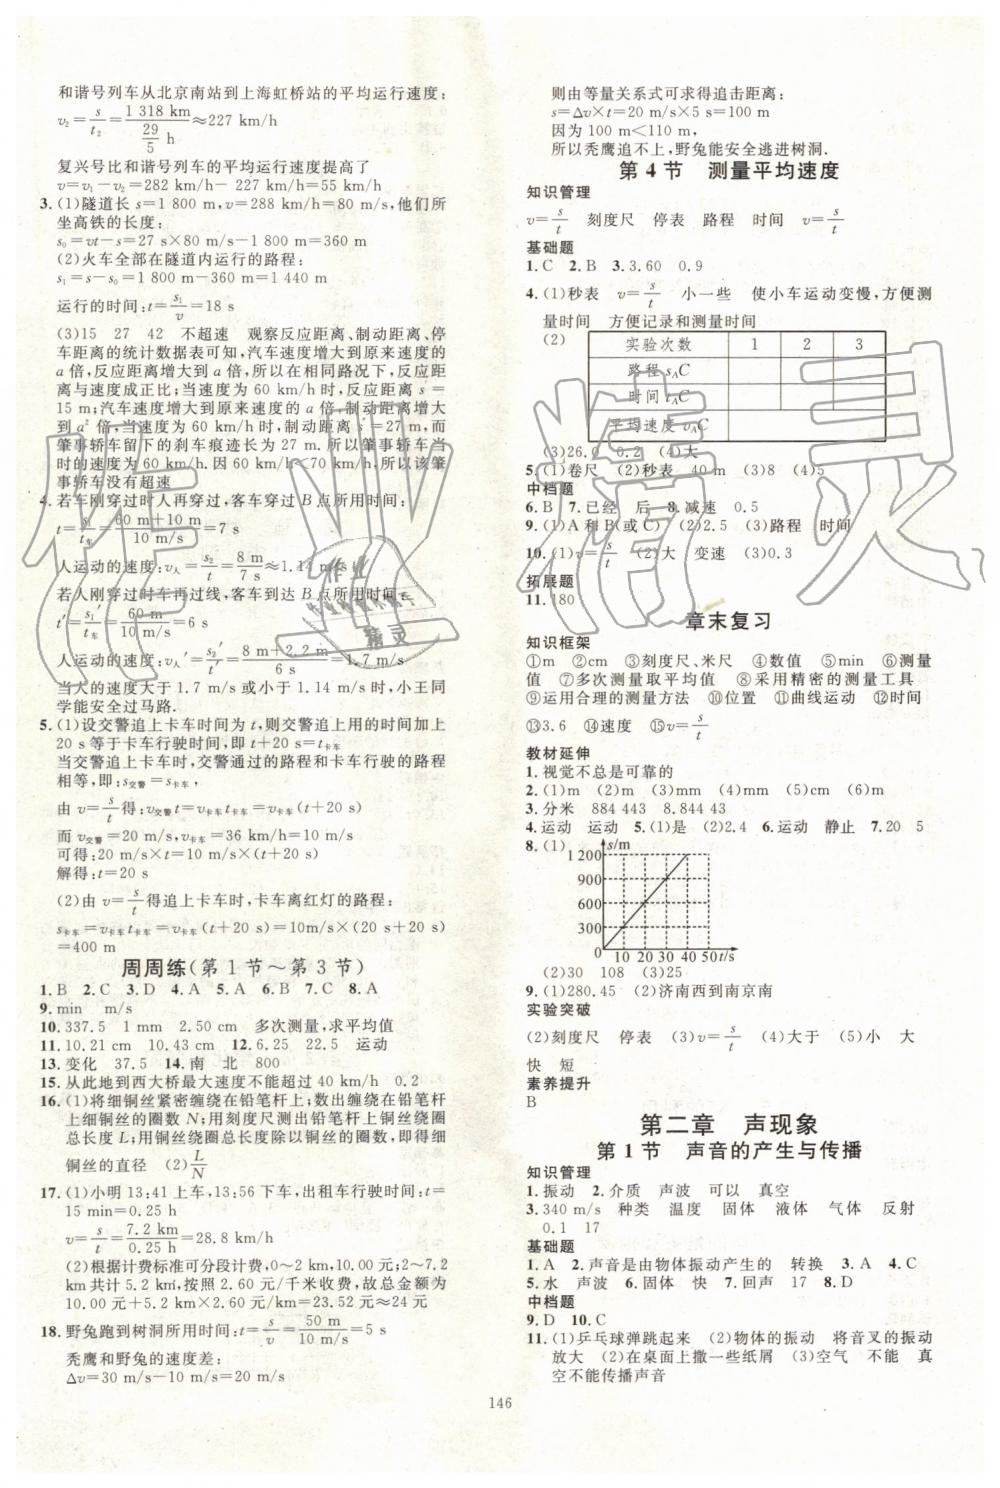 和谐号列车从北京南站到上海虹桥站的平均运行速度:
v₂=s/t₂=1 318 km/(29/5 h)≈227 km/h
复兴号比和谐号列车的平均运行速度提高了
v=v₁-v₂=282 km/h- 227 km/h=55 km/h
3.(1)隧道长 s=1 800 m,v=288 km/h=80 m/s,他们所
坐高铁的长度:
s₀=vt-s=27 s×80 m/s-1 800 m=360 m
(2)火车全部在隧道内运行的路程:
s₁=s-s₀=1 800 m-360 m=1 440 m
运行的时间:t=s₁/v=18 s
(3)15 27 42 不超速 观察反应距离、制动距离、停
车距离的统计数据表可知,汽车速度增大到原来速度的
a 倍,反应距离增大到 a 倍,所以在相同路况下,反应距
离与速度成正比;当速度为 60 km/h 时,反应距离 s=
15 m;汽车速度增大到原来速度的 a 倍,制动距离增大
到 a² 倍,当速度为 60 km/h 时,制动距离 s′=27 m,而
肇事轿车留下的刹车痕迹长为 27 m. 所以肇事轿车当
时的速度为 60 km/h. 因为 60 km/h<70 km/h,所以该肇
事轿车没有超速
4. 若车刚穿过时人再穿过,客车穿过 B 点所用时间:
t=s₁/t车=(60 m+10 m)/(10 m/s)=7 s
人运动的速度:v人=s₂/t=8 m/7 s≈1.14 m/s
若人刚穿过时车再过线,客车到达 B 点所用时间:
t′=s₁′/t车=60 m/(10 m/s)=6 s
人运动的速度:v人′=s₂′/t′=(8 m+2.2 m)/6 s=1.7 m/s
当人的速度大于 1.7 m/s 或小于 1.14 m/s 时,小王同
学能安全过马路.
5.(1)设交警追上卡车时间为 t,则交警追上用的时间加上
20 s 等于卡车行驶时间,即 t+20 s=t卡车
当交警追上卡车时,交警通过的路程和卡车行驶的路程
相等,即:s交警=s卡车,
由 v=s/t得:v交警t=v卡车t卡车=v卡车(t+20 s)
而 v交警=20 m/s,v卡车=36 km/h=10 m/s
可得:20 m/s×t=10 m/s×(t+20 s)
解得:t=20 s
(2)由 v=s/t得追上卡车时,卡车离红灯的路程:
s卡车=v卡车t卡车=v卡车(t+20 s)=10m/s×(20 s+20 s)
=400 m
周周练(第 1 节～第 3 节)
1. B 2. C 3. D 4. A 5. A 6. D 7. C 8. A
9. min m/s
10. 337.5 1 mm 2.50 cm 多次测量,求平均值
11. 10.21 cm 10.43 cm 12. 6.25 22.5 运动
13. 变化 37.5 14. 南 北 800
15. 从此地到西大桥最大速度不能超过 40 km/h 0.2
16. (1)将细铜丝紧密缠绕在铅笔杆上;数出缠绕在铅笔杆
上细铜丝的圈数 N;用刻度尺测出铅笔杆上铜丝绕圈
总长度 L;用铜丝绕圈总长度除以铜丝的圈数,即得细
铜丝的直径 (2)L/N
17. (1)小明 13:41 上车,13:56 下车,出租车行驶时间:t=
15 min=0.25 h
v=s/t=7.2 km/0.25 h=28.8 km/h
(2)根据计费标准可分段计费,0～2 km,10 元,2～7.2
km共计 5.2 km,按照 2.60 元/千米收费,故总金额为
10 元+5.2 km×2.60 元/km=23.52 元≈24 元
18. 野兔跑到树洞所用时间:t=s/v=50 m/(10 m/s)=5 s
秃鹰和野兔的速度差:
Δv=30 m/s-10 m/s=20 m/s
则由等量关系式可求得追击距离:
s=Δv×t=20 m/s×5 s=100 m
因为 100 m<110 m,
所以秃鹰追不上,野兔能安全逃进树洞.
第 4 节 测量平均速度
知识管理
v=s/t 刻度尺 停表 路程 时间 v=s/t
基础题
1. C 2. B 3. 3.60 0.9
4. (1)秒表 v=s/t 小一些 使小车运动变慢,方便测
量时间 方便记录和测量时间
(2) 实验次数 1 2 3
路程 sAC
时间 tAC
平均速度 vAC
(3)26.0 0.2 (4)大
5. (1)卷尺 (2)秒表 40 m (3)8 (4)5
中档题
6. B 7. 已经 后 8. 减速 0.5
9. (1)A 和 B(或 C) (2)2.5 (3)路程 时间
10. (1)v=s/t (2)大 变速 (3)0.3
拓展题
11. 180
章末复习
知识框架
①m ②cm ③刻度尺、米尺 ④数值 ⑤min ⑥测量
值 ⑦多次测量取平均值 ⑧采用精密的测量工具
⑨运用合理的测量方法 ⑩位置 ⑪曲线运动 ⑫时间
⑬3.6 ⑭速度 ⑮v=s/t
教材延伸
1. 视觉不总是可靠的
2. (1)m (2)dm (3)mm (4)mm (5)cm (6)m
3. 分米 884 443 8.844 43
4. 运动 运动 5. (1)是 (2)2.4 6. 运动 静止 7. 20 5
8. (1)
s/m
1 200
900
600
300
0 10 20 30 40 50 t/s
(2)30 108 (3)25
9. (1)280.45 (2)济南西到南京南
实验突破
(2)刻度尺 停表 (3)v=s/t (4)大于 (5)小 大
快 短
素养提升
B
第二章 声现象
第 1 节 声音的产生与传播
知识管理
1. 振动 2. 介质 声波 可以 真空
3. 340 m/s 种类 温度 固体 液体 气体 反射
0.1 17
基础题
1. A 2. 声音是由物体振动产生的 转换 3. A 4. C
5. 水 声波 6. 固体 快 7. 回声 17 8. D
中档题
9. D 10. C
11. (1)乒乓球弹跳起来 (2)物体的振动 将音叉的振动
放大 (2)在桌面上撒一些纸屑 (3)空气 不能 真
空不能传播声音
146
作业精灵